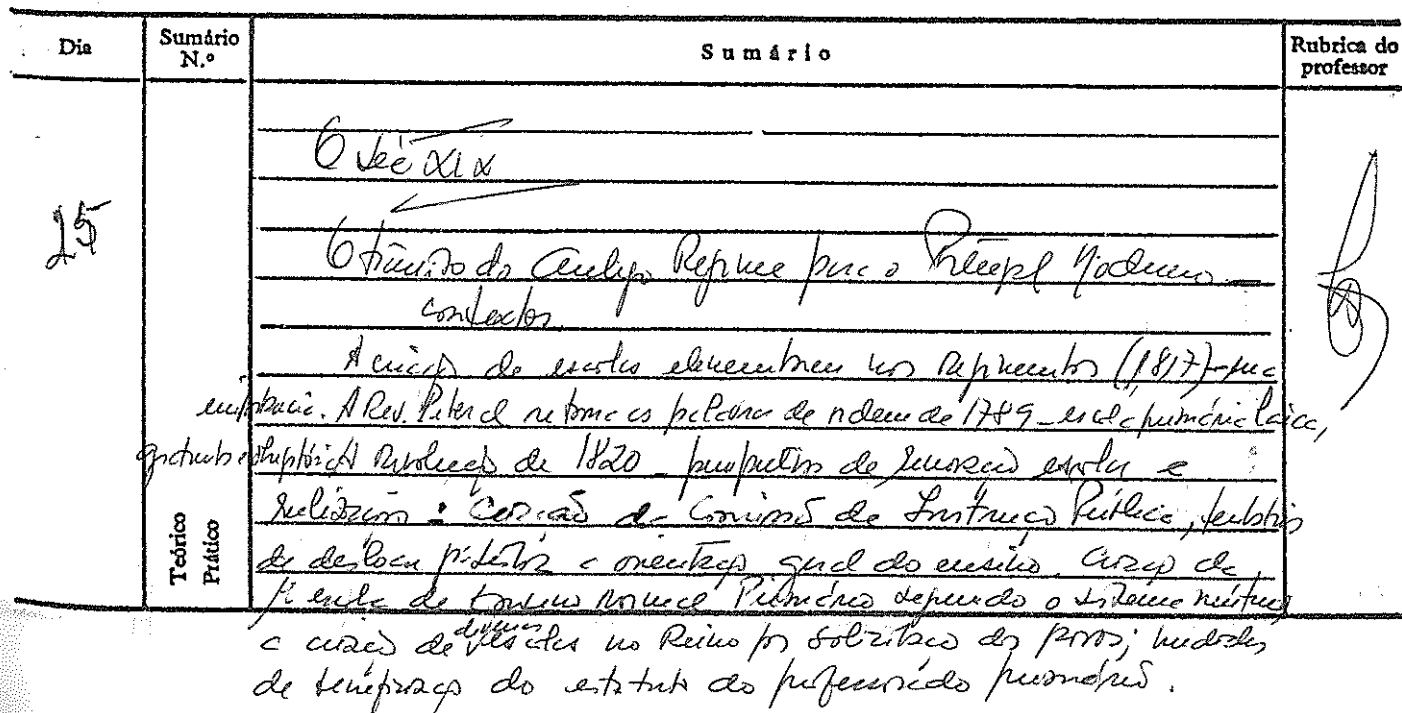 Dia
Sumário N.º
Sumário
Rubrica do professor
O Séc XIX
25
O trânsito do Antigo Regime para o Portugal Moderno —
contextos.
A criação de escolas elementares nos Regimentos (1817) - sua
importância. A Rev. Liberal retoma as palavras de ordem de 1789 - escola primária laica,
gratuita e obrigatória. A Revolução de 1820 - propostas de renovação escolar e
realizações: Criação da Comissão de Instrução Pública,
de a orientação geral do ensino. Criação da
1ª escola de Ensino Normal Primário segundo o sistema mútuo
a criação de diversas escolas no Reino por solicitação dos povos; medidas
de dignificação do estatuto do professorado primário.
Teórico
Prático